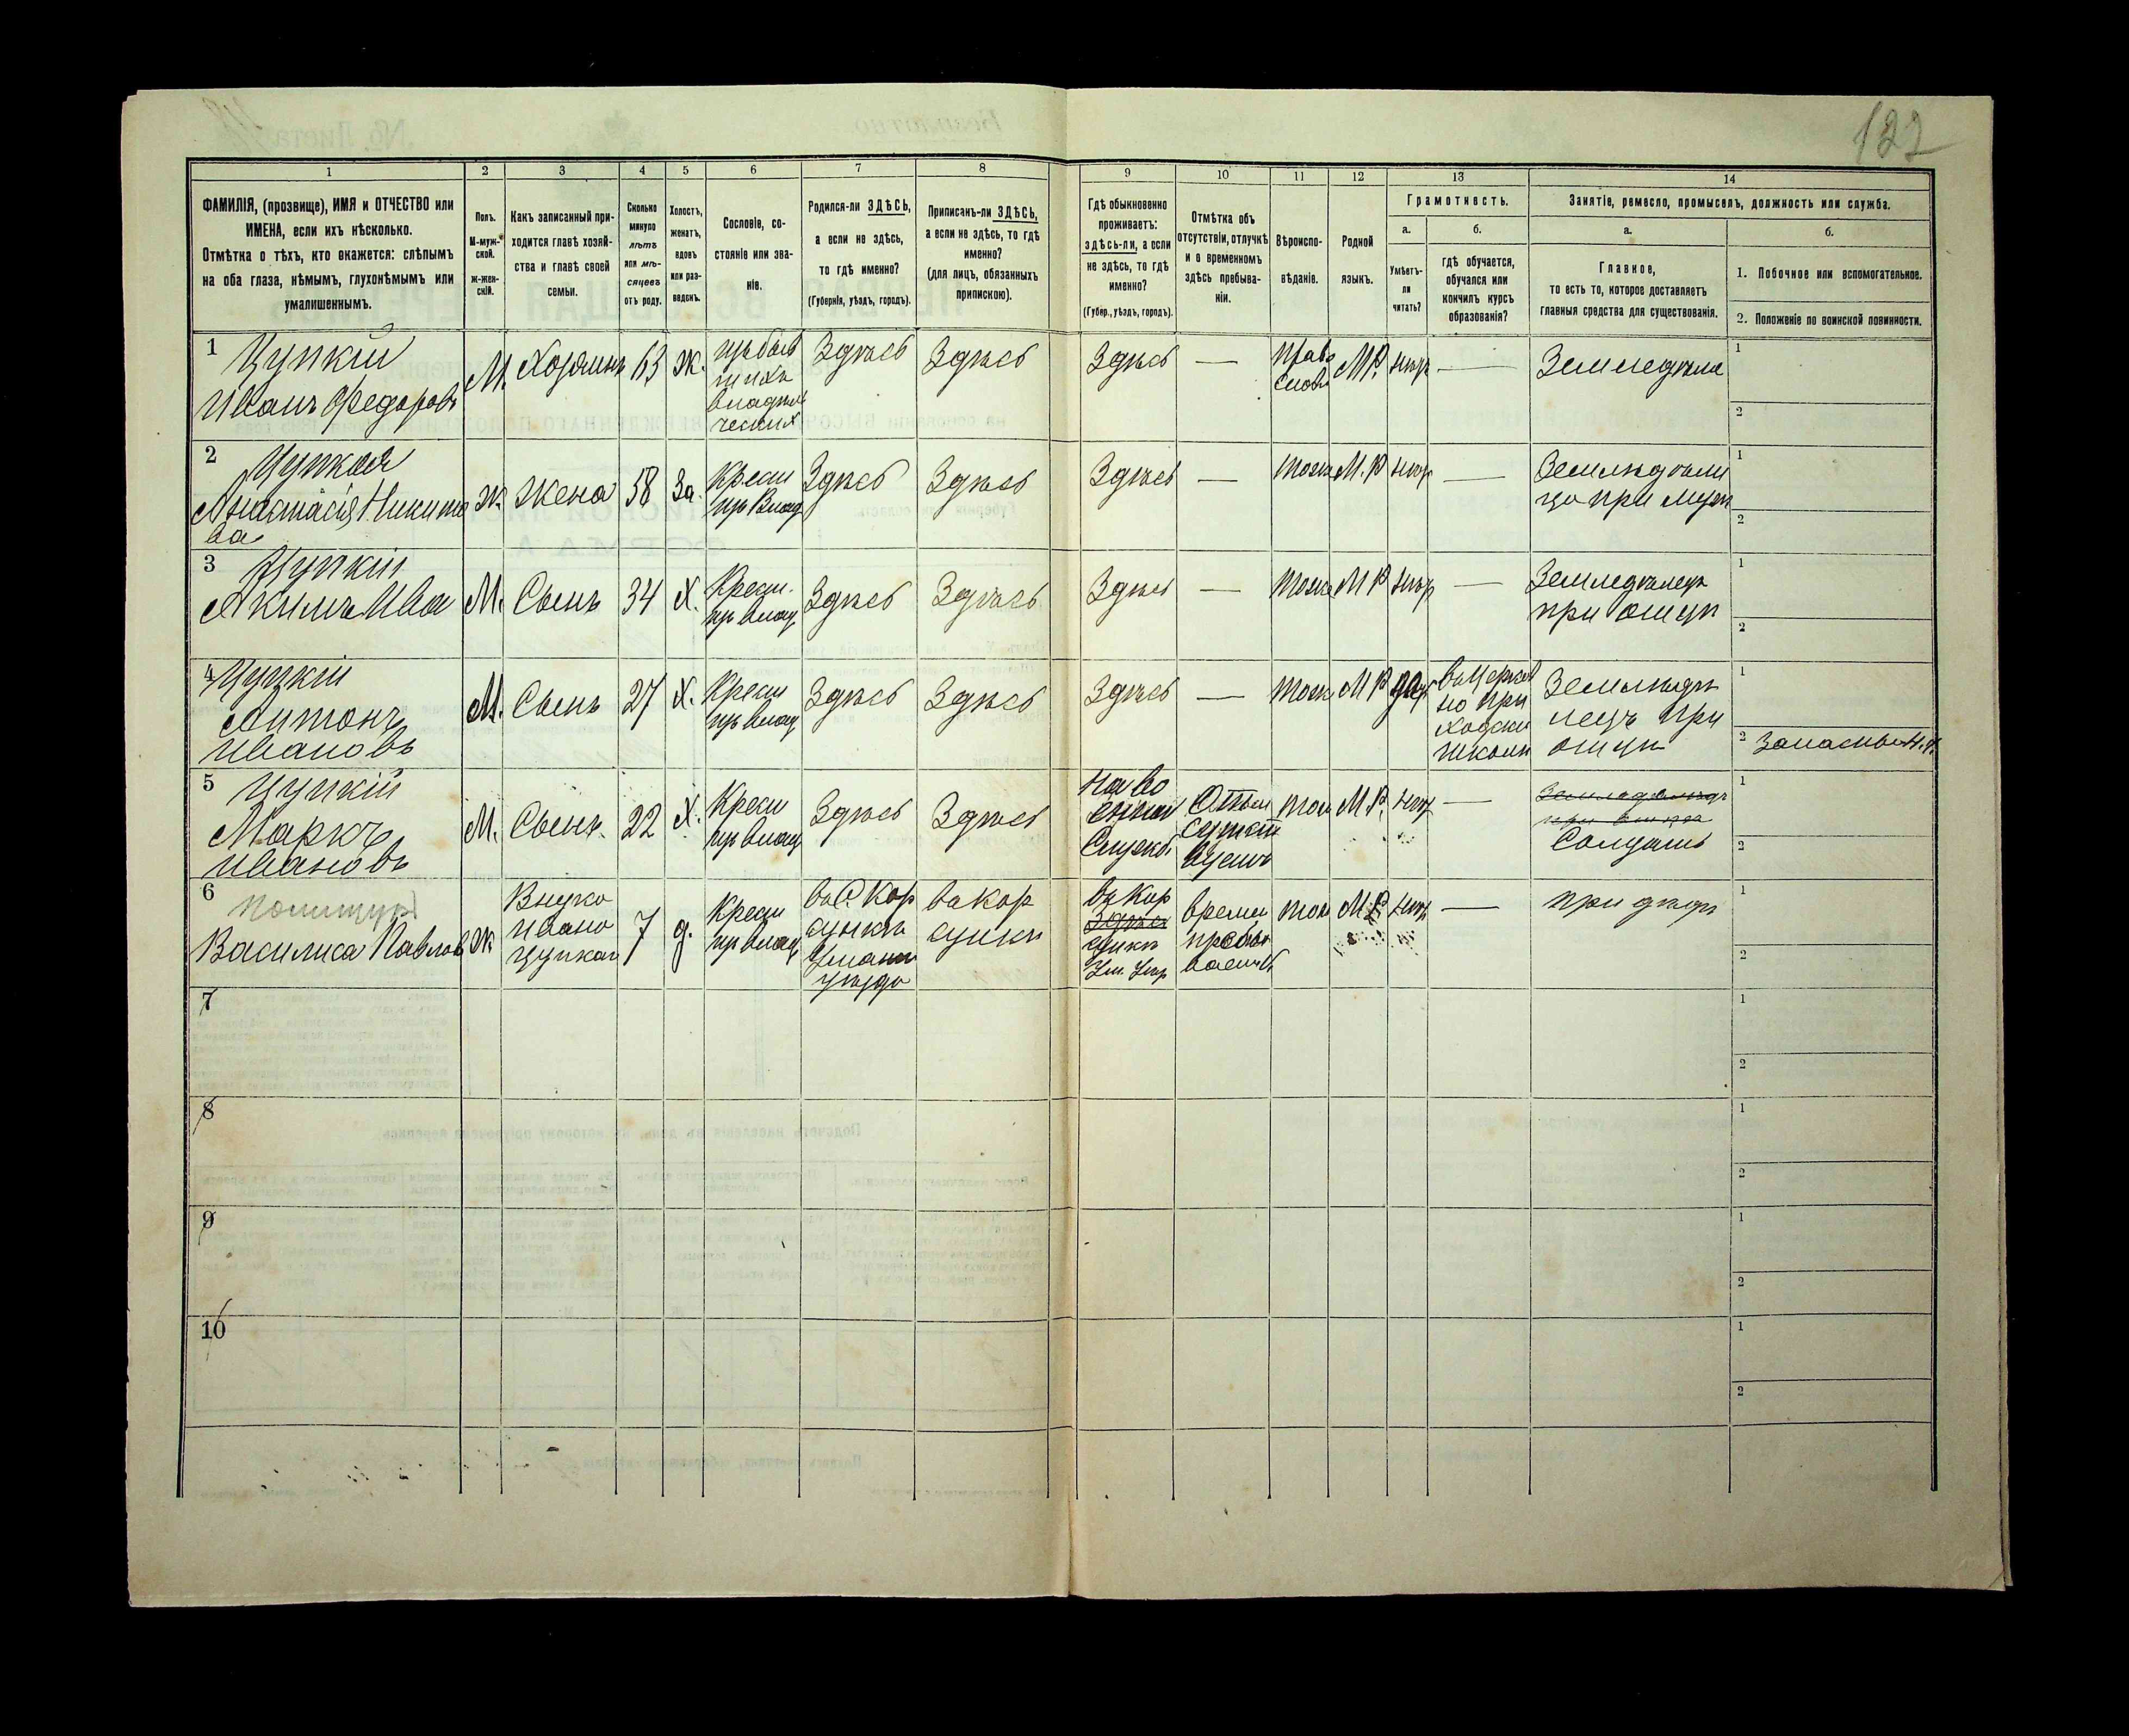 122
1 2 3 4 5 6 7 8 9 10 11 12 13 14
ФАМИЛІЯ, (прозвище), ИМЯ и ОТЧЕСТВО или
ИМЕНА, если ихъ нѣсколько.
Отмѣтка о тѣхъ, кто окажется: слѣпымъ
на оба глаза, нѣмымъ, глухонѣмымъ или
умалишеннымъ.
Полъ.
М-муж-
ской.
ж-жен-
скій.
Какъ записанный при-
ходится главѣ хозяй-
ства и главѣ своей
семьи.
Сколько
минуло
лѣтъ
или мѣ-
сяцевъ
отъ роду.
Холостъ,
женатъ,
вдовъ
или раз-
веденъ.
Сословіе, со-
стояніе или зва-
ніе.
Родился-ли ЗДѢСЬ,
а если не здѣсь,
то гдѣ именно?
(Губернія, уѣздъ, городъ).
Приписанъ-ли ЗДѢСЬ,
а если не здѣсь, то гдѣ
именно?
(для лицъ, обязанныхъ
припискою).
Гдѣ обыкновенно
проживаетъ:
здѣсь-ли, а если
не здѣсь, то гдѣ
именно?
(Губер., уѣздъ, городъ).
Отмѣтка объ
отсутствіи, отлучкѣ
и о временномъ
здѣсь пребыва-
ніи.
Вѣроиспо-
вѣданіе.
Родной
языкъ.
Грамотность.
а.
Умѣетъ-
ли
читать?
б.
гдѣ обучается,
обучался или
кончилъ курсъ
образованія?
Занятіе, ремесло, промыселъ, должность или служба.
а.
Главное,
то есть то, которое доставляетъ
главныя средства для существованія.
б.
1. Побочное или вспомогательное.
2. Положеніе по воинской повинности.
1
Цупкій
Иванъ Федоровъ
М. Хозяинъ 63 Ж.
Здѣсь Здѣсь Здѣсь —
Прав
слов
М.Р. нѣтъ —
1
2
2
Цупкая
Анастасія Никито
ва
Ж. Жена 58 За.
Крест
пр Влад
Здѣсь Здѣсь Здѣсь — тоже М.Р нѣтъ —
1
2
3
Цупкій
Якимъ Ива
М. Сынъ 34 Х.
Крест.
пр влад,
Здѣсь Здѣсь Здѣсь — тоже М Р нѣтъ —
Земледѣлецъ
при отцѣ
1
2
4
Цупкій
Антонъ
Ивановъ
М. Сынъ 27 Х.
Крест
пр влад
Здѣсь Здѣсь Здѣсь — тоже М Р да
въ Церков
но при
ходск
школѣ
Земледѣ
лецъ при
отцѣ
1
2
5
Цупкій
Маркъ
Ивановъ
М. Сынъ. 22 Х.
Крест
пр влад
Здѣсь Здѣсь
на во
енной
служб
тож М.Р. нѣтъ —
Солдатъ
1
2
6
Василиса Павлов
Ж
Внука
Ивана
Цупкаг
7 д.
Крест
пр влад,
въ С. Кор
сунки
Уман
уѣзда
въ Кор
сунки
въ Кор
Здѣсь
сунки
Ум. Уѣз
време
пребы
ваетъ
тож М.Р. нѣтъ —
1
2
7
1
2
8
1
2
9
1
2
10
1
2